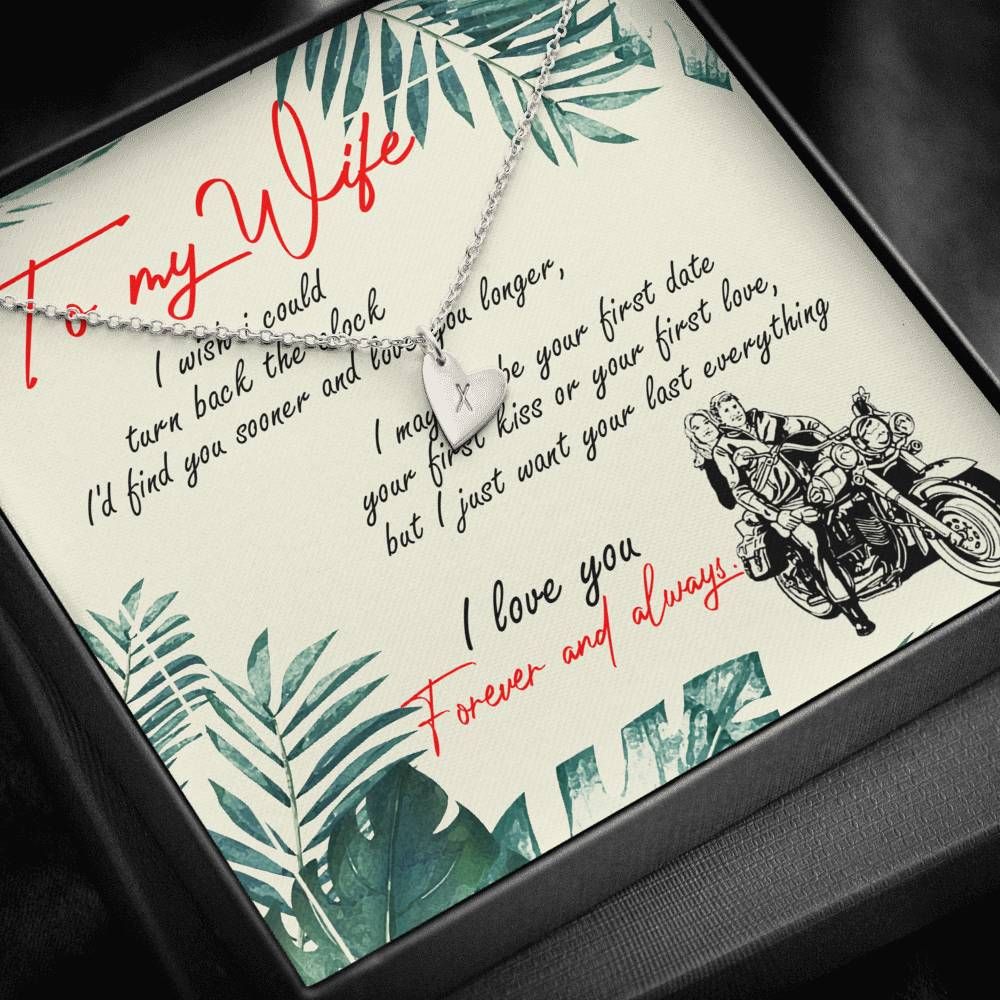 To my Wife
I wish i could
turn back the clock
I'd find you sooner and love you longer,
X
I may be your first date
your first kiss or your first love,
but I just want your last everything
I love you
Forever and always.